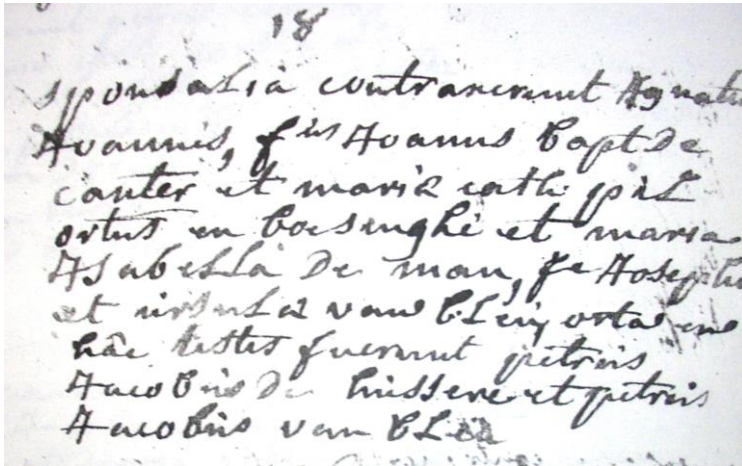 18
sponsalia contraxerunt Ignatiu
Ioannis, f^ius Ioannis bapt de
canter et mariæ cath: pil
ortus en boesinghe et maria
Isabella De man, f^e Iosephi
et ursulæ van bleu, orta en
hâc testes fuerunt petrus
Iacobus De hussere et petrus
Iacobus van bleu